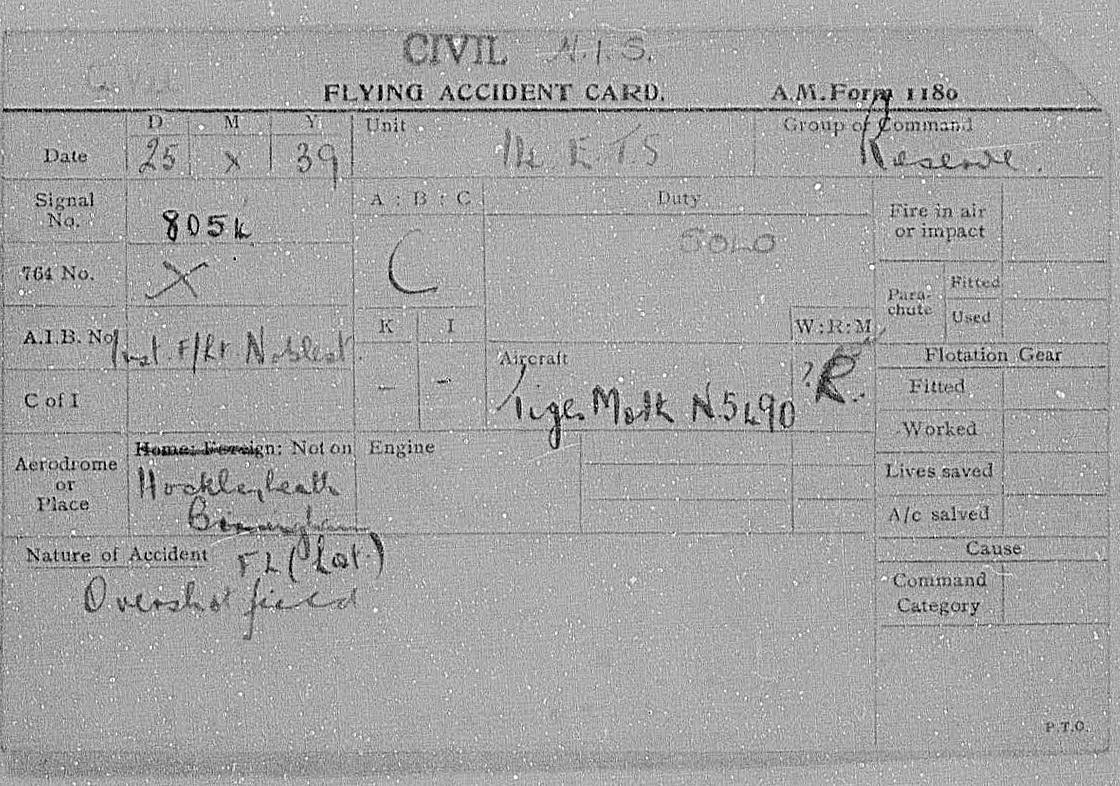 CIVIL N.I.S.
Civil
FLYING ACCIDENT CARD. A.M.Form 1180
Date D M Y 25 X 39 Unit 14 E.T.S Group or Command Reserve.
Signal No. 8054 A : B : C C Duty SOLO Fire in air or impact
764 No. X Para-chute Fitted Used
A.I.B. No. Inst. F/Lt K I - - W:R:M ? R. Flotation Gear
C of I Aircraft Tiger Moth N5490 Fitted
Worked
Aerodrome or Place Home: Foreign: Not on Engine Lives saved
Hockleyheath
Birmingham A/c salved
Nature of Accident FL (Lat.) Cause
Overshot field Command Category
P.T.O.